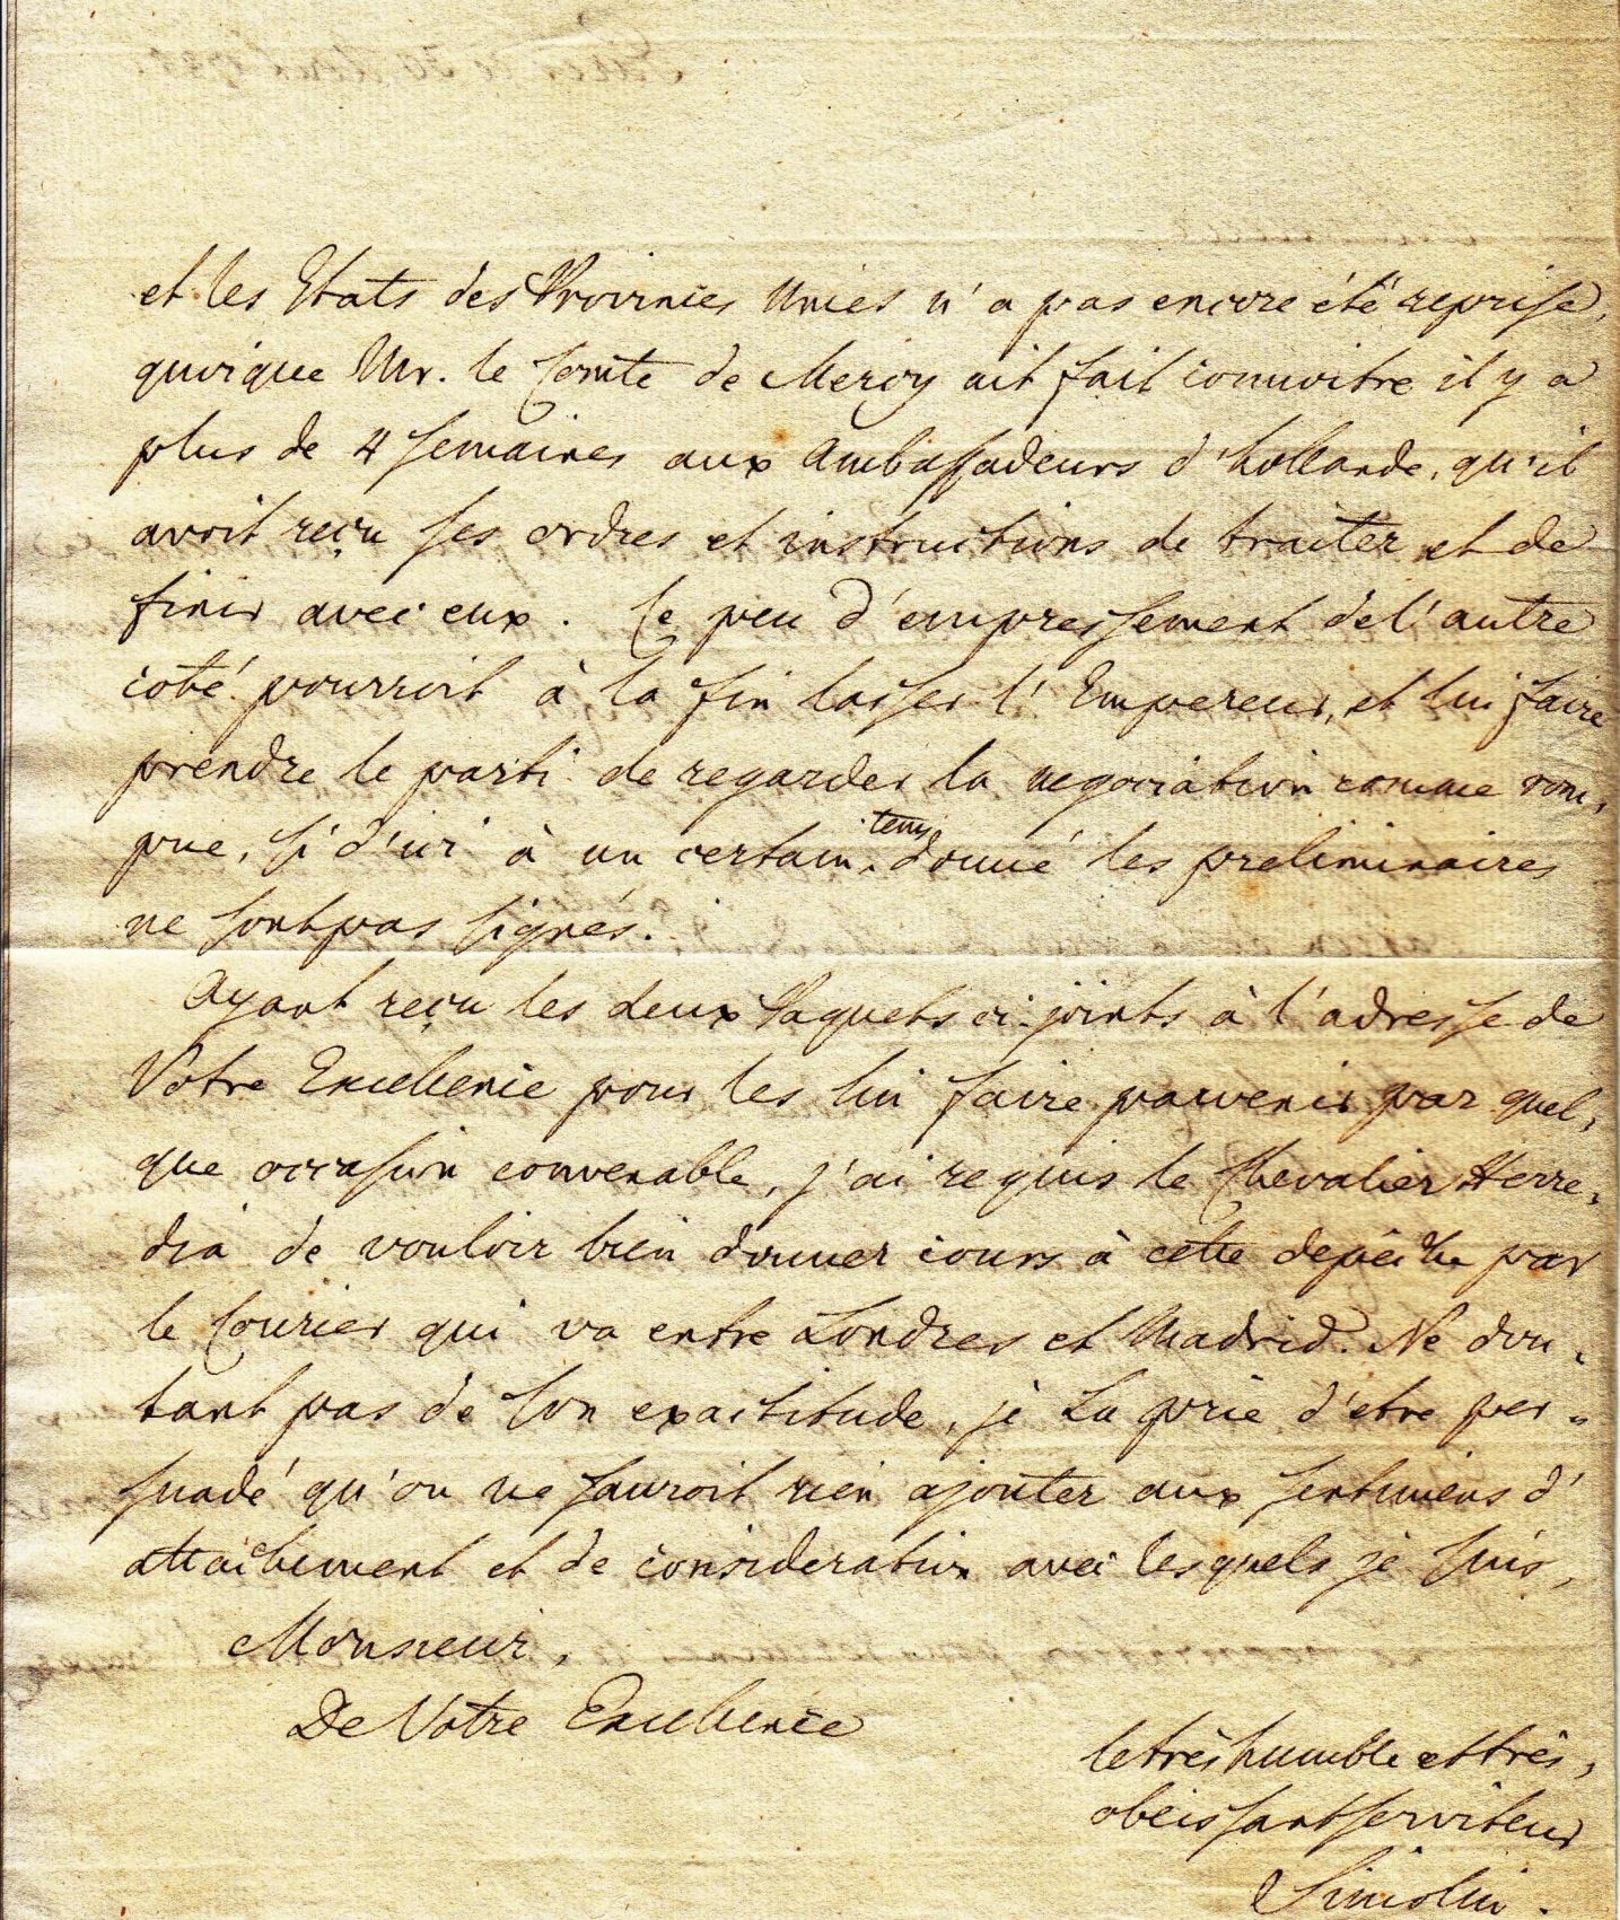 et les Etats des Provinces Unies n'a pas encore été reprise,
quoique Mr. le Comte de Mercy ait fait connoitre il y a
plus de 4 semaines aux Ambassadeurs d'hollande, qu'il
avoit reçu ses ordres et instructions de traiter et de
finir avec eux. Le peu d'empressement de l'autre
coté pourroit à la fin lasser l'Empereur, et lui faire
prendre le parti de regarder la negociation comme rom,
pue, si d'ici à un certain tems donné les preliminaires
ne sont pas signés.
Ayant reçu les deux Paquets ci-joints à l'adresse de
Votre Excellence pour les lui faire parvenir par quel,
que occasion convenable, j'ai requis le Chevalier Herre,
dia de vouloir bien donner cours à cette depêche par
le Courier qui va entre Londres et Madrid. Ne dou,
tant pas de son exactitude, je La prie d'etre per,
suadé qu'on ne sauroit rien ajouter aux sentimens d'
attachement et de consideration avec lesquels je suis,
Monsieur,
De Votre Excellence
le très humble et très,
obeissant serviteur
Simolin.